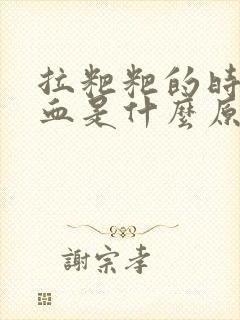 拉粑粑的時
血是什麼原
謝宗孝